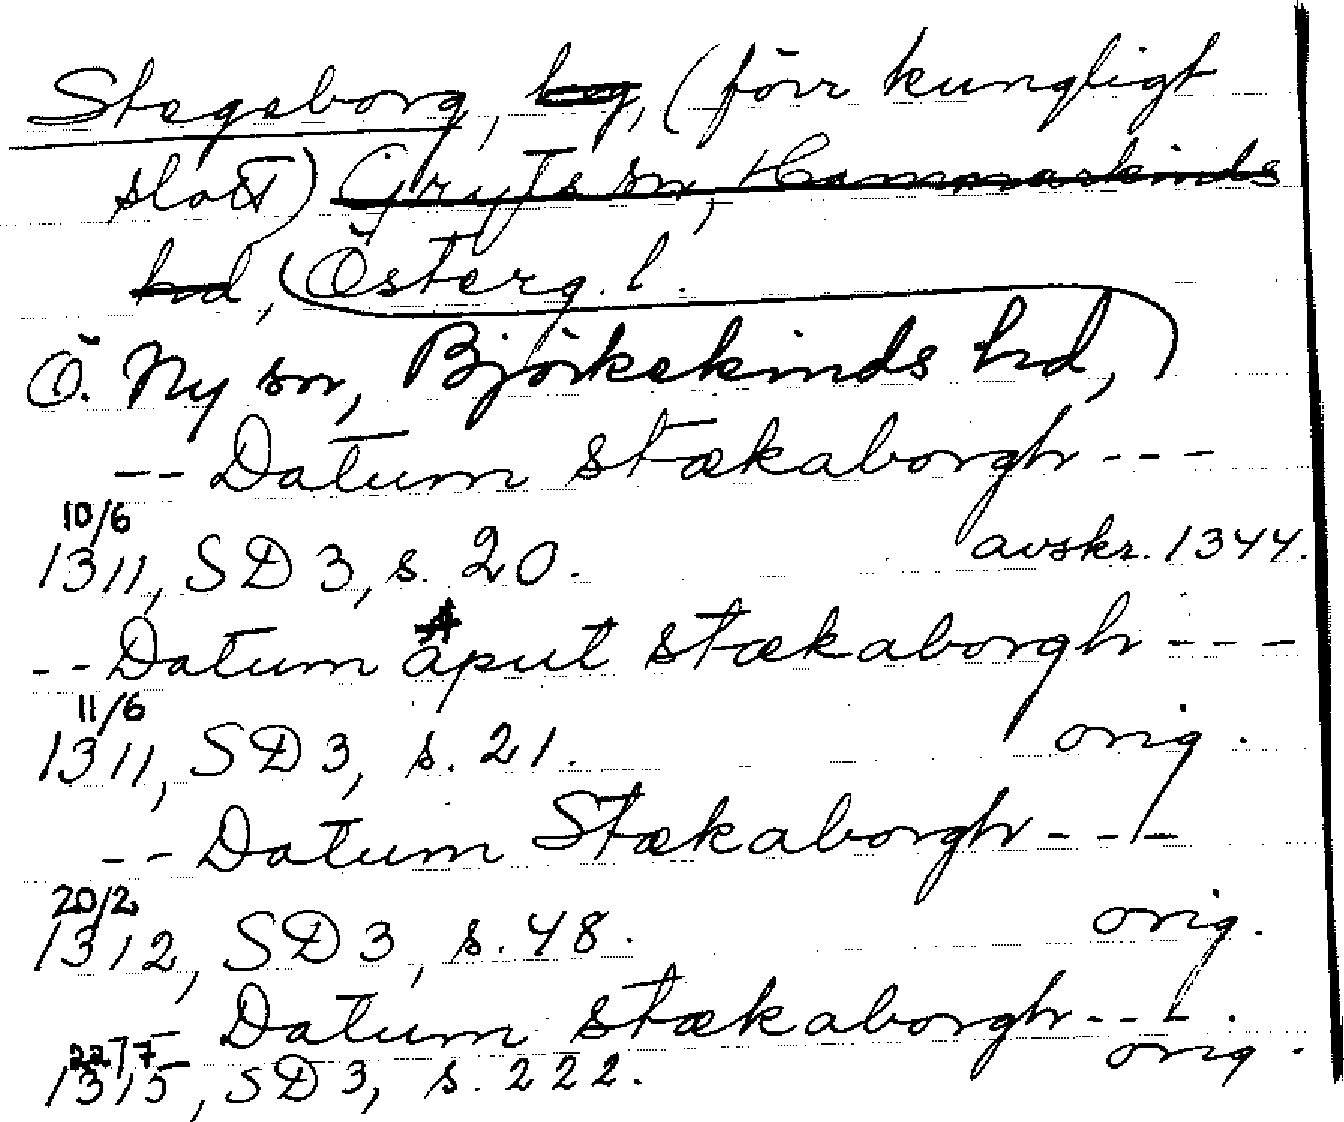 Stegeborg, hg, (förr kungligt
slott) Gryts sn, Hammarkinds
hrd, Österg. l.
Ö. Ny sn, Björkekinds hrd,
-- Datum stækaborgh ---
10/6
1311, SD 3, s. 20. avskr. 1344.
-- Datum aput stækaborgh ---
11/6
1311, SD 3, s. 21. orig.
-- Datum Stækaborgh ---
20/2
1312, SD 3, s. 48. orig.
- Datum stækaborgh ---.
22/7
1315, SD 3, s. 222. orig.